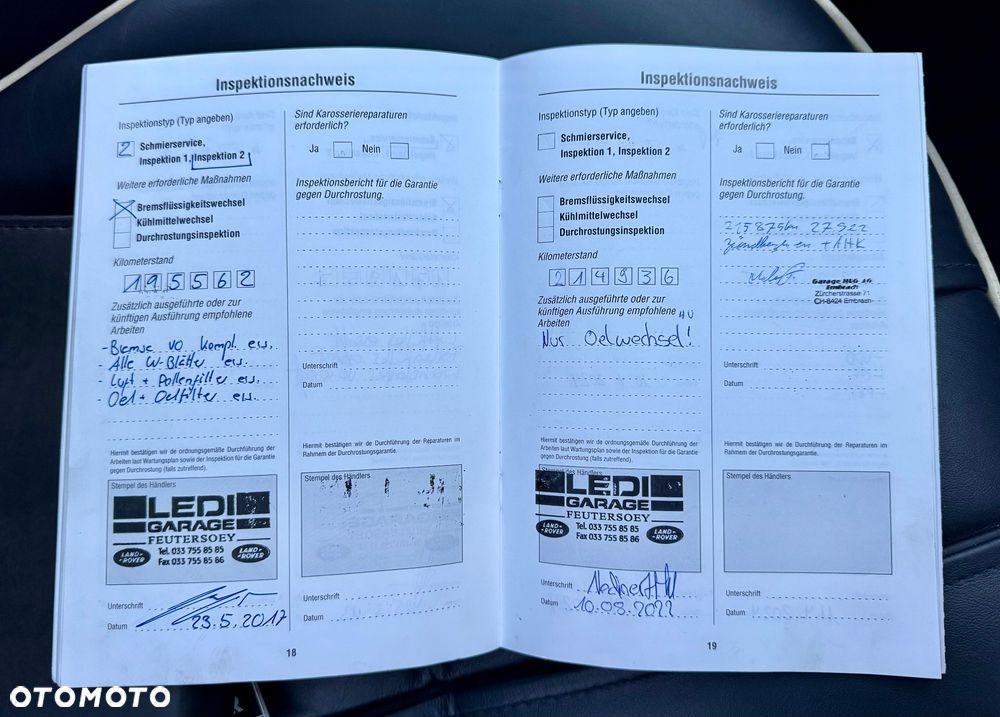 Inspektionsnachweis
Inspektionstyp (Typ angeben)
2 Schmierservice,
Inspektion 1, Inspektion 2
Weitere erforderliche Maßnahmen
Bremsflüssigkeitswechsel
Kühlmittelwechsel
Durchrostungsinspektion
Kilometerstand
195562
Zusätzlich ausgeführte oder zur
künftigen Ausführung empfohlene
Arbeiten
- Bremse VO kompl. ers.
- Alle W-Blätter ers.
- Luft + Pollenfilter ers.
- Oel + Oelfilter ers.
Hiermit bestätigen wir die ordnungsgemäße Durchführung der
Arbeiten laut Wartungsplan sowie der Inspektion für die Garantie
gegen Durchrostung (falls zutreffend).
Stempel des Händlers
LEDI
GARAGE
FEUTERSOEY
Tel. 033 755 85 85
Fax 033 755 85 86
LAND-ROVER
LAND-ROVER
Unterschrift
Datum 23.5.2017
Sind Karosseriereparaturen
erforderlich?
Ja Nein
Inspektionsbericht für die Garantie
gegen Durchrostung.
Unterschrift
Datum
Hiermit bestätigen wir die Durchführung der Reparaturen im
Rahmen der Durchrostungsgarantie.
Stempel des Händlers
Unterschrift
Datum
18
Inspektionsnachweis
Inspektionstyp (Typ angeben)
Schmierservice,
Inspektion 1, Inspektion 2
Weitere erforderliche Maßnahmen
Bremsflüssigkeitswechsel
Kühlmittelwechsel
Durchrostungsinspektion
Kilometerstand
214936
Zusätzlich ausgeführte oder zur
künftigen Ausführung empfohlene
Arbeiten
Nur Oelwechsel!
Hiermit bestätigen wir die ordnungsgemäße Durchführung der
Arbeiten laut Wartungsplan sowie der Inspektion für die Garantie
gegen Durchrostung (falls zutreffend).
Stempel des Händlers
LEDI
GARAGE
FEUTERSOEY
Tel. 033 755 85 85
Fax 033 755 85 86
LAND-ROVER
LAND-ROVER
Unterschrift
Datum 10.08.2022
Sind Karosseriereparaturen
erforderlich?
Ja Nein
Inspektionsbericht für die Garantie
gegen Durchrostung.
215875km 27.9.22
+ AHK
Garage
Embrach
Zürcherstrasse 71
CH-8424 Embrach
Unterschrift
Datum
Hiermit bestätigen wir die Durchführung der Reparaturen im
Rahmen der Durchrostungsgarantie.
Stempel des Händlers
Unterschrift
Datum
19
OTOMOTO